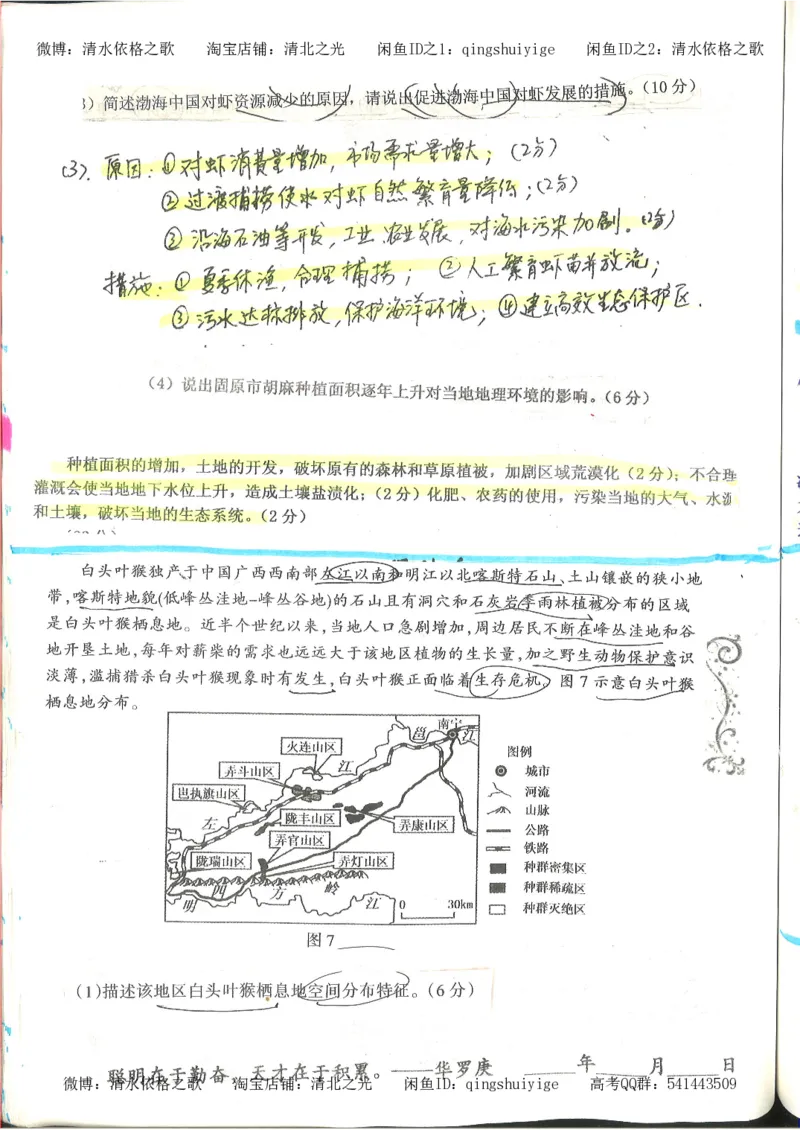 微博：清水依格之歌 淘宝店铺：清北之光 闲鱼ID之1：qingshuiyige 闲鱼ID之2：清水依格之歌
3）简述渤海中国对虾资源减少的原因，请说出促进渤海中国对虾发展的措施。（10分）
(3). 原因：①对虾消费量增加，市场需求量增大；（2分）
②过渡捕捞使水对虾自然繁育量降低；（2分）
③沿海石油等开发，工业、农业发展，对海水污染加剧。（2分）
措施：①夏季休渔，合理捕捞；②人工繁育虾苗并放流；
③污水达标排放，保护海洋环境；④建立高效生态保护区.
（4）说出固原市胡麻种植面积逐年上升对当地地理环境的影响。（6分）
种植面积的增加，土地的开发，破坏原有的森林和草原植被，加剧区域荒漠化（2分）；不合理
灌溉会使当地地下水位上升，造成土壤盐渍化；（2分）化肥、农药的使用，污染当地的大气、水源
和土壤，破坏当地的生态系统。（2分）
白头叶猴独产于中国广西西南部左江以南和明江以北喀斯特石山、土山镶嵌的狭小地
带，喀斯特地貌(低峰丛洼地-峰丛谷地)的石山且有洞穴和石灰岩季雨林植被分布的区域
是白头叶猴栖息地。近半个世纪以来，当地人口急剧增加，周边居民不断在峰丛洼地和谷
地开垦土地，每年对薪柴的需求也远远大于该地区植物的生长量，加之野生动物保护意识
淡薄，滥捕猎杀白头叶猴现象时有发生，白头叶猴正面临着生存危机。图7示意白头叶猴
栖息地分布。
南宁
邕
江
火连山区
江
弄斗山区
岜执旗山区
左
陇丰山区
弄康山区
弄官山区
陇瑞山区
弄灯山区
四 方 岭
明
江
0 30km
图例
城市
河流
山脉
公路
铁路
种群密集区
种群稀疏区
种群灭绝区
图7
(1)描述该地区白头叶猴栖息地空间分布特征。（6分）
聪明在于勤奋，天才在于积累。——华罗庚 年 月 日
微博：清水依格之歌 淘宝店铺：清北之光 闲鱼ID：qingshuiyige 高考QQ群：541443509